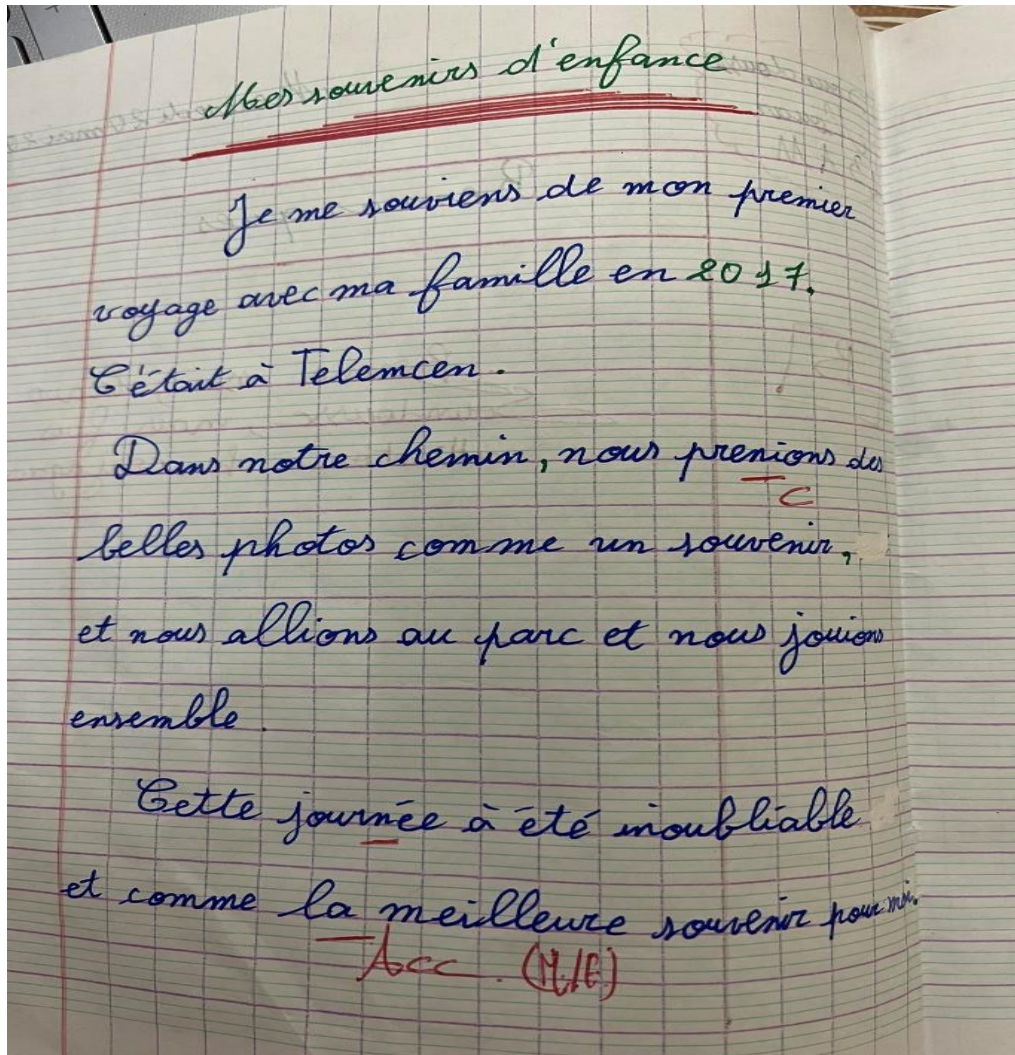 Mes souvenirs d'enfance
Je me souviens de mon premier
voyage avec ma famille en 2017.
C'était à Telemcen.
Dans notre chemin, nous prenions des
C
belles photos comme un souvenir,
et nous allions au parc et nous jouions
ensemble.
Cette journée à été inoubliable
et comme la meilleure souvenir pour moi.
Acc. (M/F)